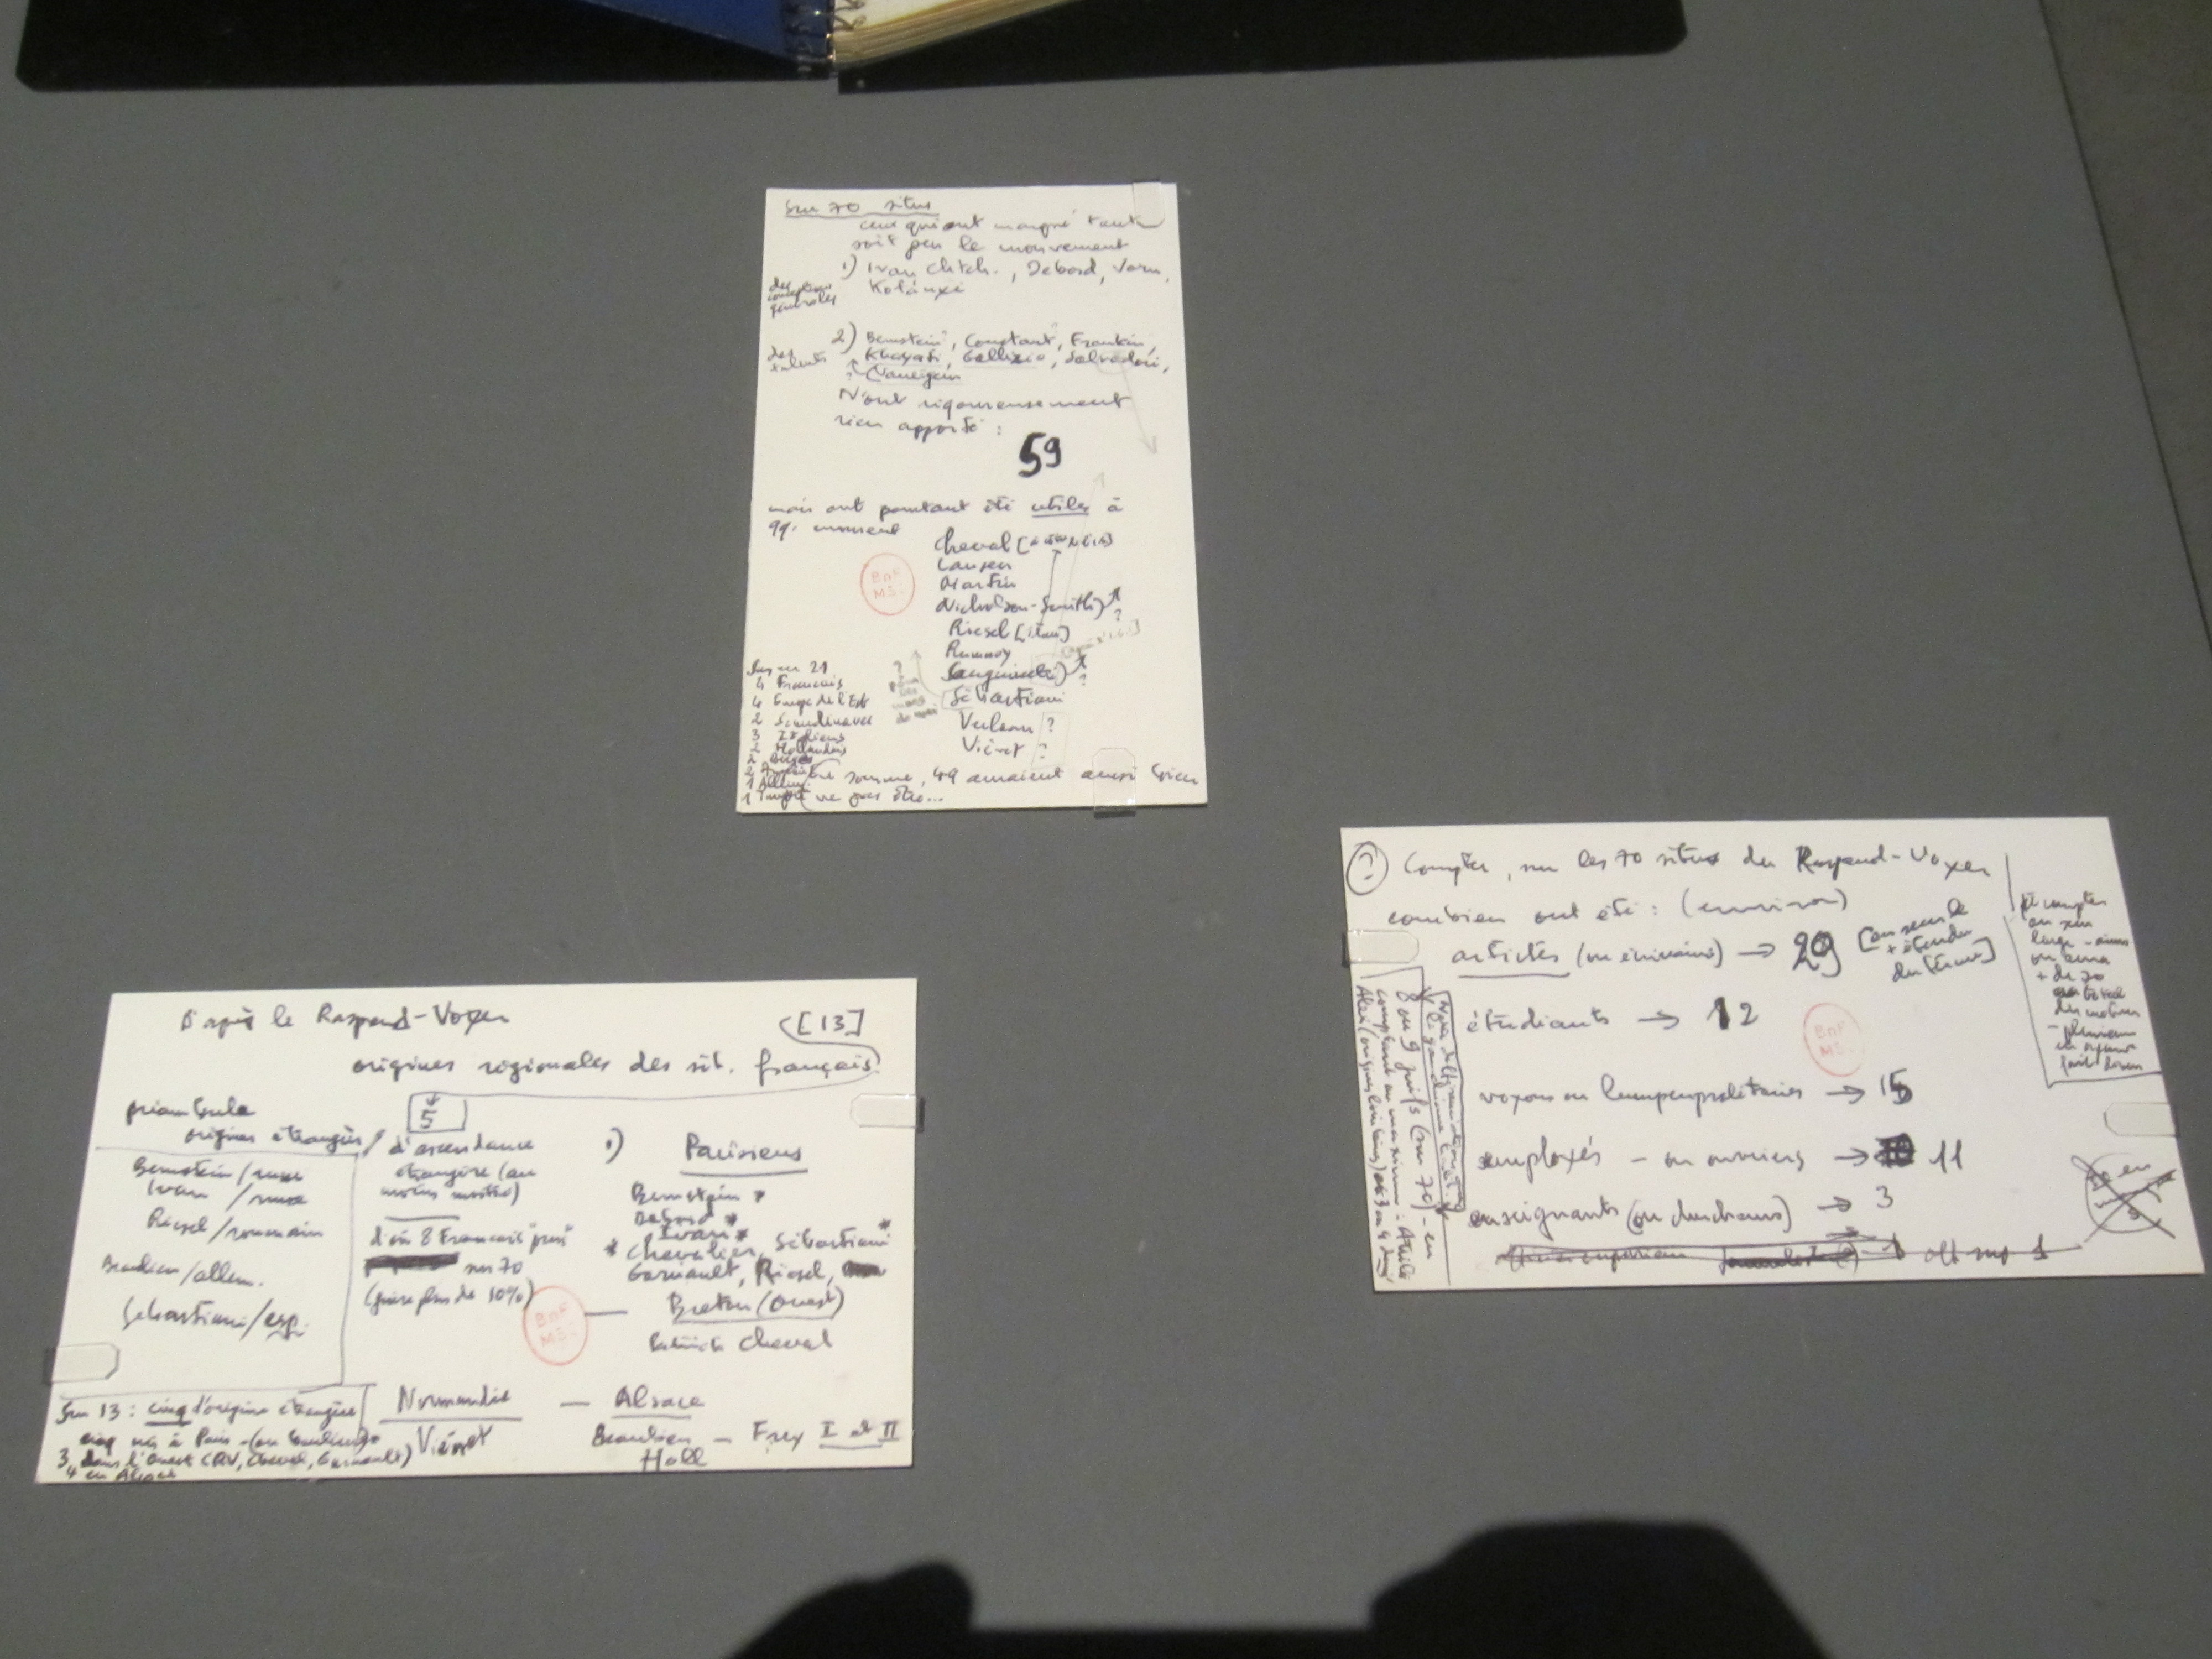 Sur 70 situs
ceux qui ont marqué tant
soit peu le mouvement
1) Ivan Chtch., Debord, Jorn,
Kotányi
des conceptions générales
2) Bernstein, Constant, Frankin,
des talents
Khayati, Gallizio, Salvadori,
? (Vaneigem
N'ont rigoureusement
rien apporté :
59
mais ont pourtant été utiles à
qq. moment
Cheval
Lausen
Martin
Nicholson-Smith) ?
Riesel [item]
Rumney
Sanguinetti) ?
Sébastiani
Verlaan ?
Viénet ?
BnF
MS.
Sur ces 21
4 Français
4 Europe de l'Est
2 Scandinaves
3 Italiens
2 Hollandais
2 Belges
2
1 Allem.
1
En somme, 49 auraient aussi bien
pu ne pas être...
D'après le Raspaud-Voyer
[13]
origines régionales des sit. français
préambule
origines étrangères /
5
d'ascendance
étrangère (au
moins moitié)
Bernstein / russe
Ivan / russe
Riesel / roumain
Beaulieu / allem.
Sébastiani / esp.
d'où 8 Français "purs"
sur 70
(guère plus de 10%)
1) Parisiens
Bernstein *
Debord *
Ivan *
* Chevalier, Sébastiani *
Garnault, Riesel,
BnF
MS.
— Breton (Ouest)
Patrick Cheval
Normandie — Alsace
Viénet
Beaulieu — Frey I et II
Holl
Sur 13 : cinq d'origine étrangère
cinq nés à Paris - (ou banlieue)
3, dans l'Ouest (RV, Cheval, Garnault)
4 en Alsace
? Compter, sur les 70 situs du Raspaud-Voyer
combien ont été : (environ)
artistes (ou écrivains) → 29 [au sens le
+ étendu
du terme]
étudiants → 12
BnF
MS.
voyous ou lumpenprolétaires → 15
employés - ou ouvriers → 11
enseignants (ou chercheurs) → 3
8 ou 9 juifs (sur 70) - en
comptant au maximum : Attila